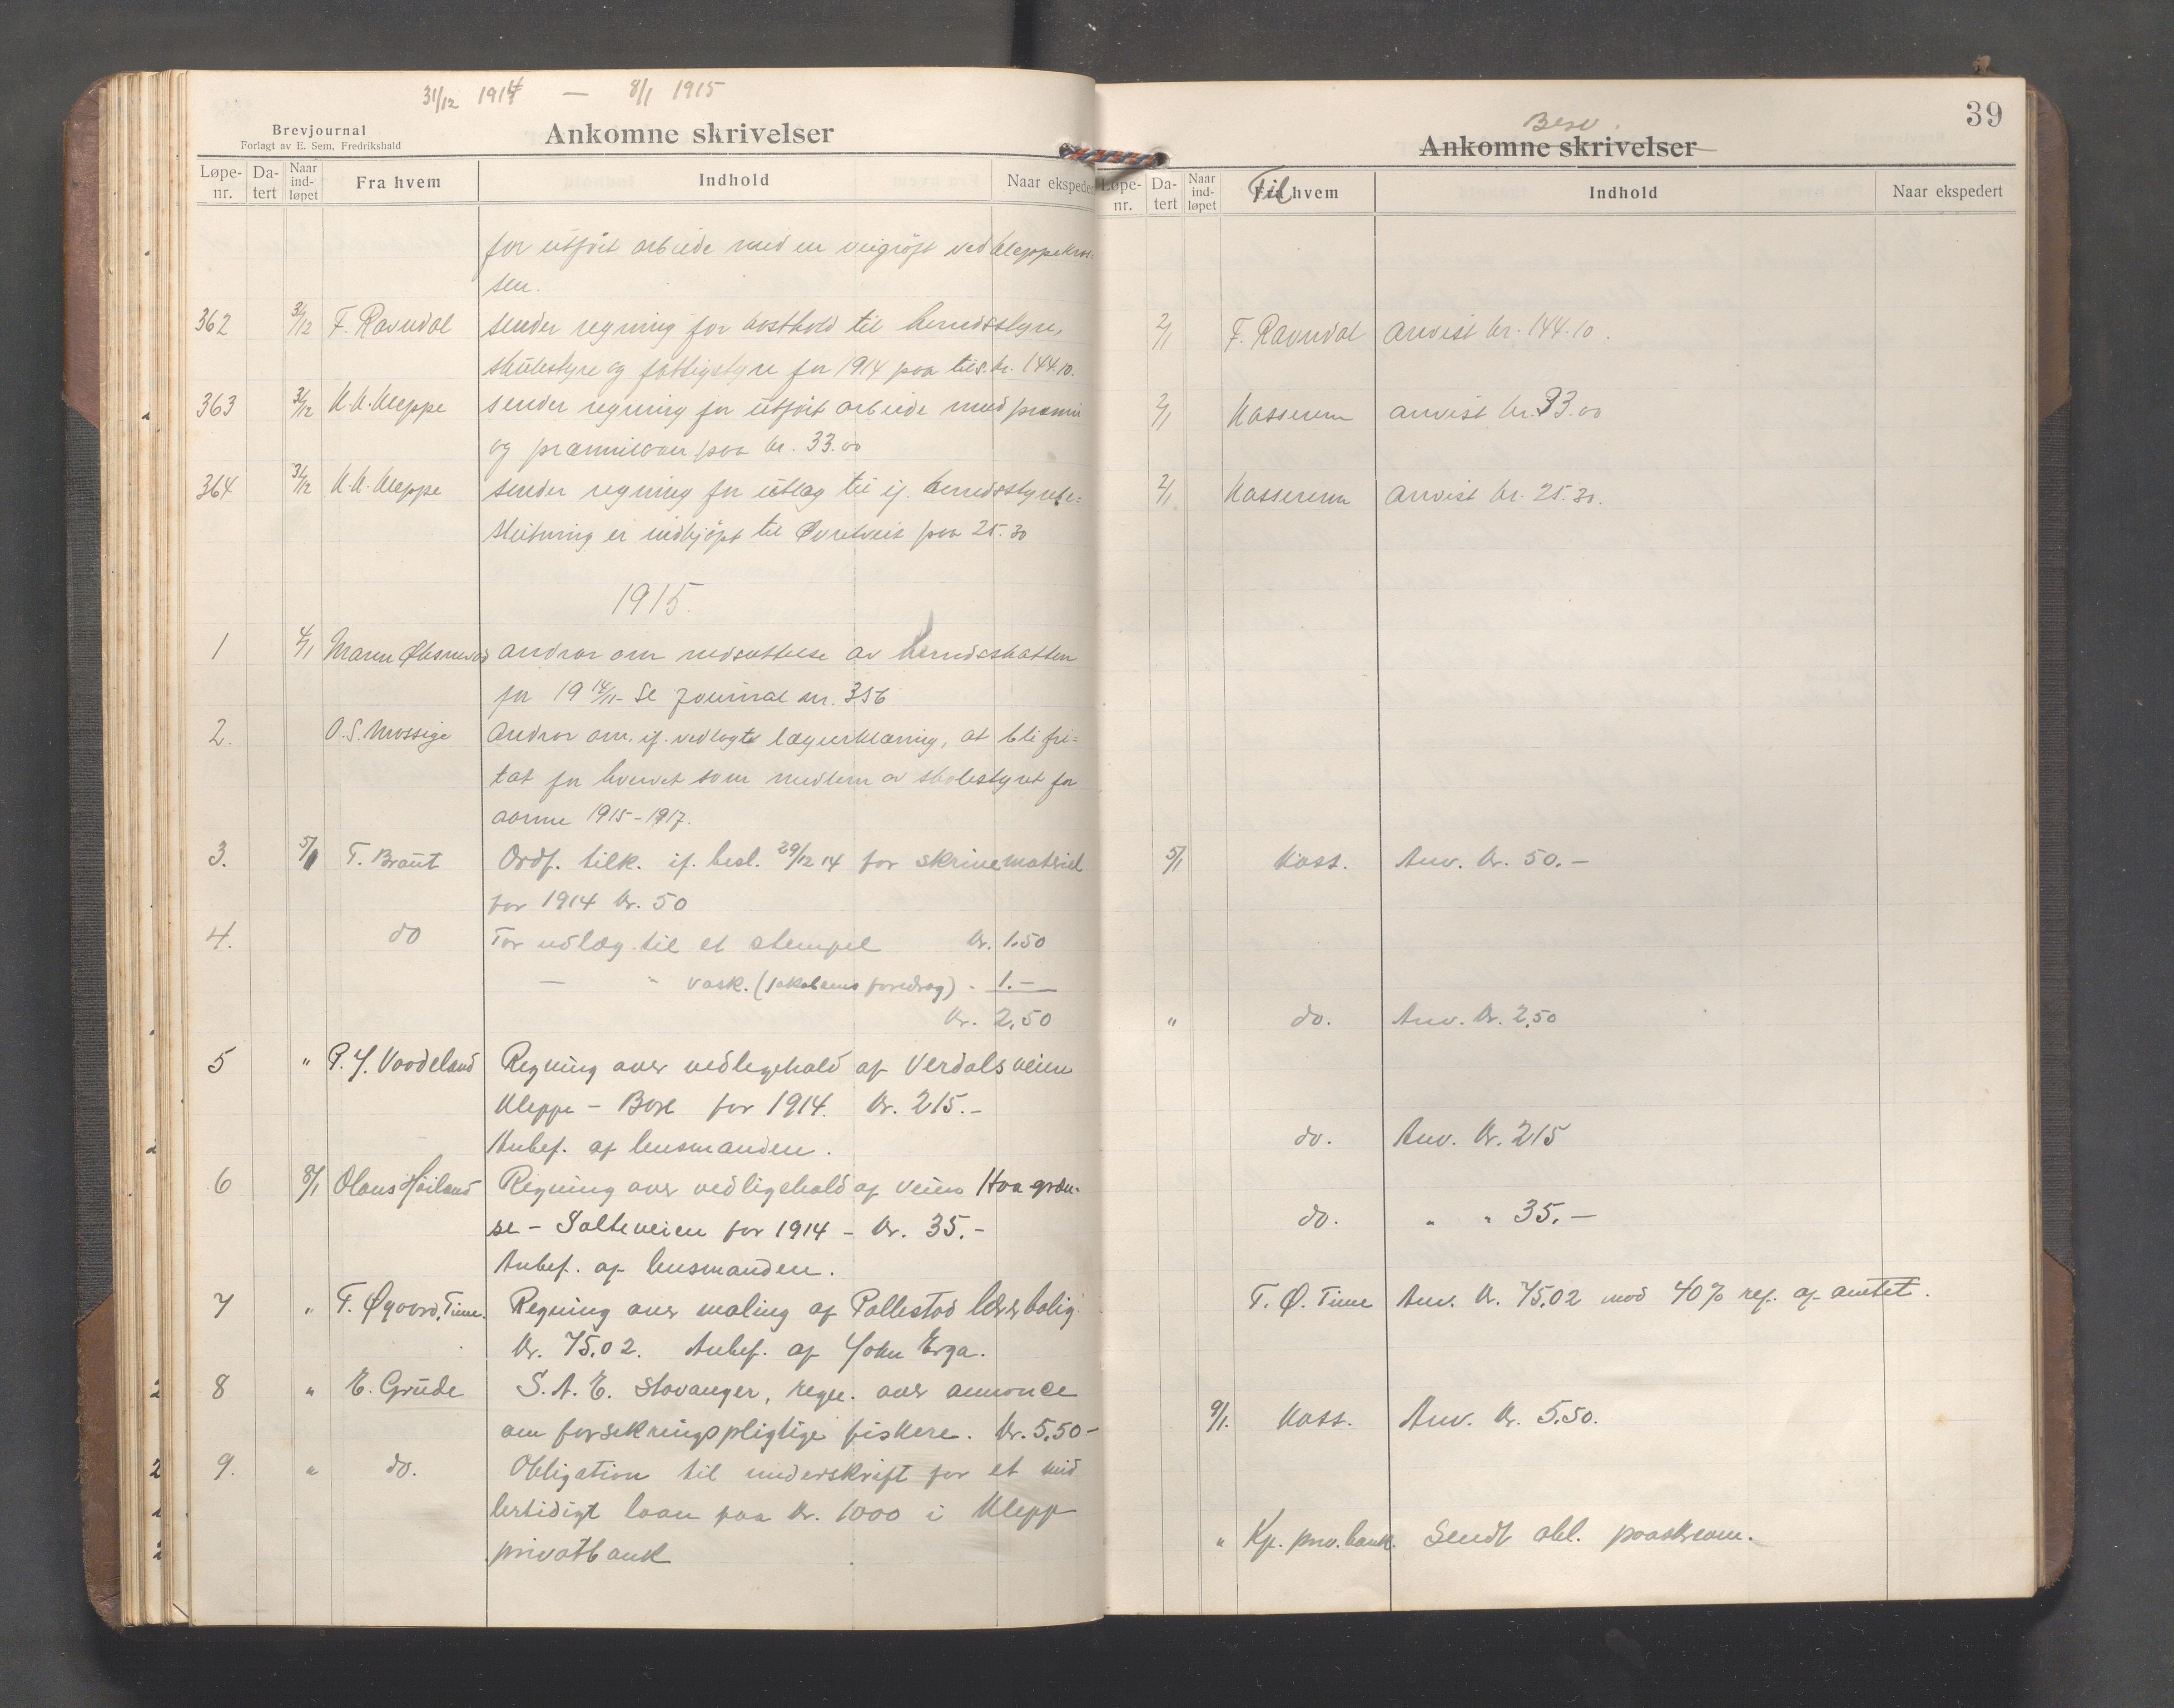 31/12 1914 — 8/1 1915
Brevjournal
Forlagt av E. Sem, Fredrikshald
Ankomne skrivelser
Løpe-nr. Da-tert Naar ind-løpet Fra hvem Indhold Naar ekspedert
for utført arbeide med en veigrøft ved Kleppekros-
sen.
362 31/12 F. Ravndal sender regning for kosthold til herredsstyre,
skulestyre og fattigstyre for 1914 paa tils. kr. 144.10.
363 31/12 K.K. Kleppe sender regning for utført arbeide med
og paa kr. 33.00
364 31/12 K.K. Kleppe sender regning for utlæg til if. herredsstyrebe=
slutning er indkjøpt til paa 25.30
1915.
1 4/1 Maren andrar om nedsættelse av herredsskatten
for 19 14/15 Se Journal nr. 356
2. O.S. Mossige Andrar om, if. vedlagte lægeerklæring, at bli fri=
tat for hvervet som medlem av skolestyret for
aarene 1915-1917.
3. 5/1 T. Braut Ordf. tilk. if. besl. 29/12 14 for skrivematriel
for 1914 kr. 50
4. do For udlæg til et stempel kr. 1.50
— " vask. (Jakobsens foredrag) - 1.—
Kr. 2,50
5 " P. J. Voodeland Regning over vedligehold af Verdalsveien
Kleppe - Bore for 1914. Kr. 215.-
Anbef. af lensmanden.
6 8/1 Olaus Høiland Regning over vedligehold af veien Haa græn-
se - Salteveien for 1914 - Kr. 35.-
Anbef. af lensmanden.
7 " T. Øgaard, Time. Regning over maling af Pollestad lærerbolig.
Kr. 75.02. Anbef. af John Erga.
8 " E. Grude S. A. E. Stavanger, regn. over annonce
om forsikringspligtige fiskere. Kr. 5.50-
9. " do. Obligation til underskrift for et mid
lertidigt laan paa Kr. 1000 i Klepp
privatbank
39
Besv.
Ankomne skrivelser
Løpe-nr. Da-tert Naar ind-løpet Til hvem Indhold Naar ekspedert
2/1 F. Ravndal anvist kr. 144.10.
2/1 Kasseren anvist kr. 33.00
2/1 Kassereren anvist kr. 25.30.
5/1 Kass. Anv. Kr. 50.—
" do. Anv. Kr. 2,50
do. Anv. Kr. 215
do. " " 35.—
T. Ø. Time Anv. Kr. 75.02 mod 40% ref. af amtet.
9/1. Kass. Anv. Kr. 5.50.
" Kp. priv. bank. Sendt obl. paaskreven.